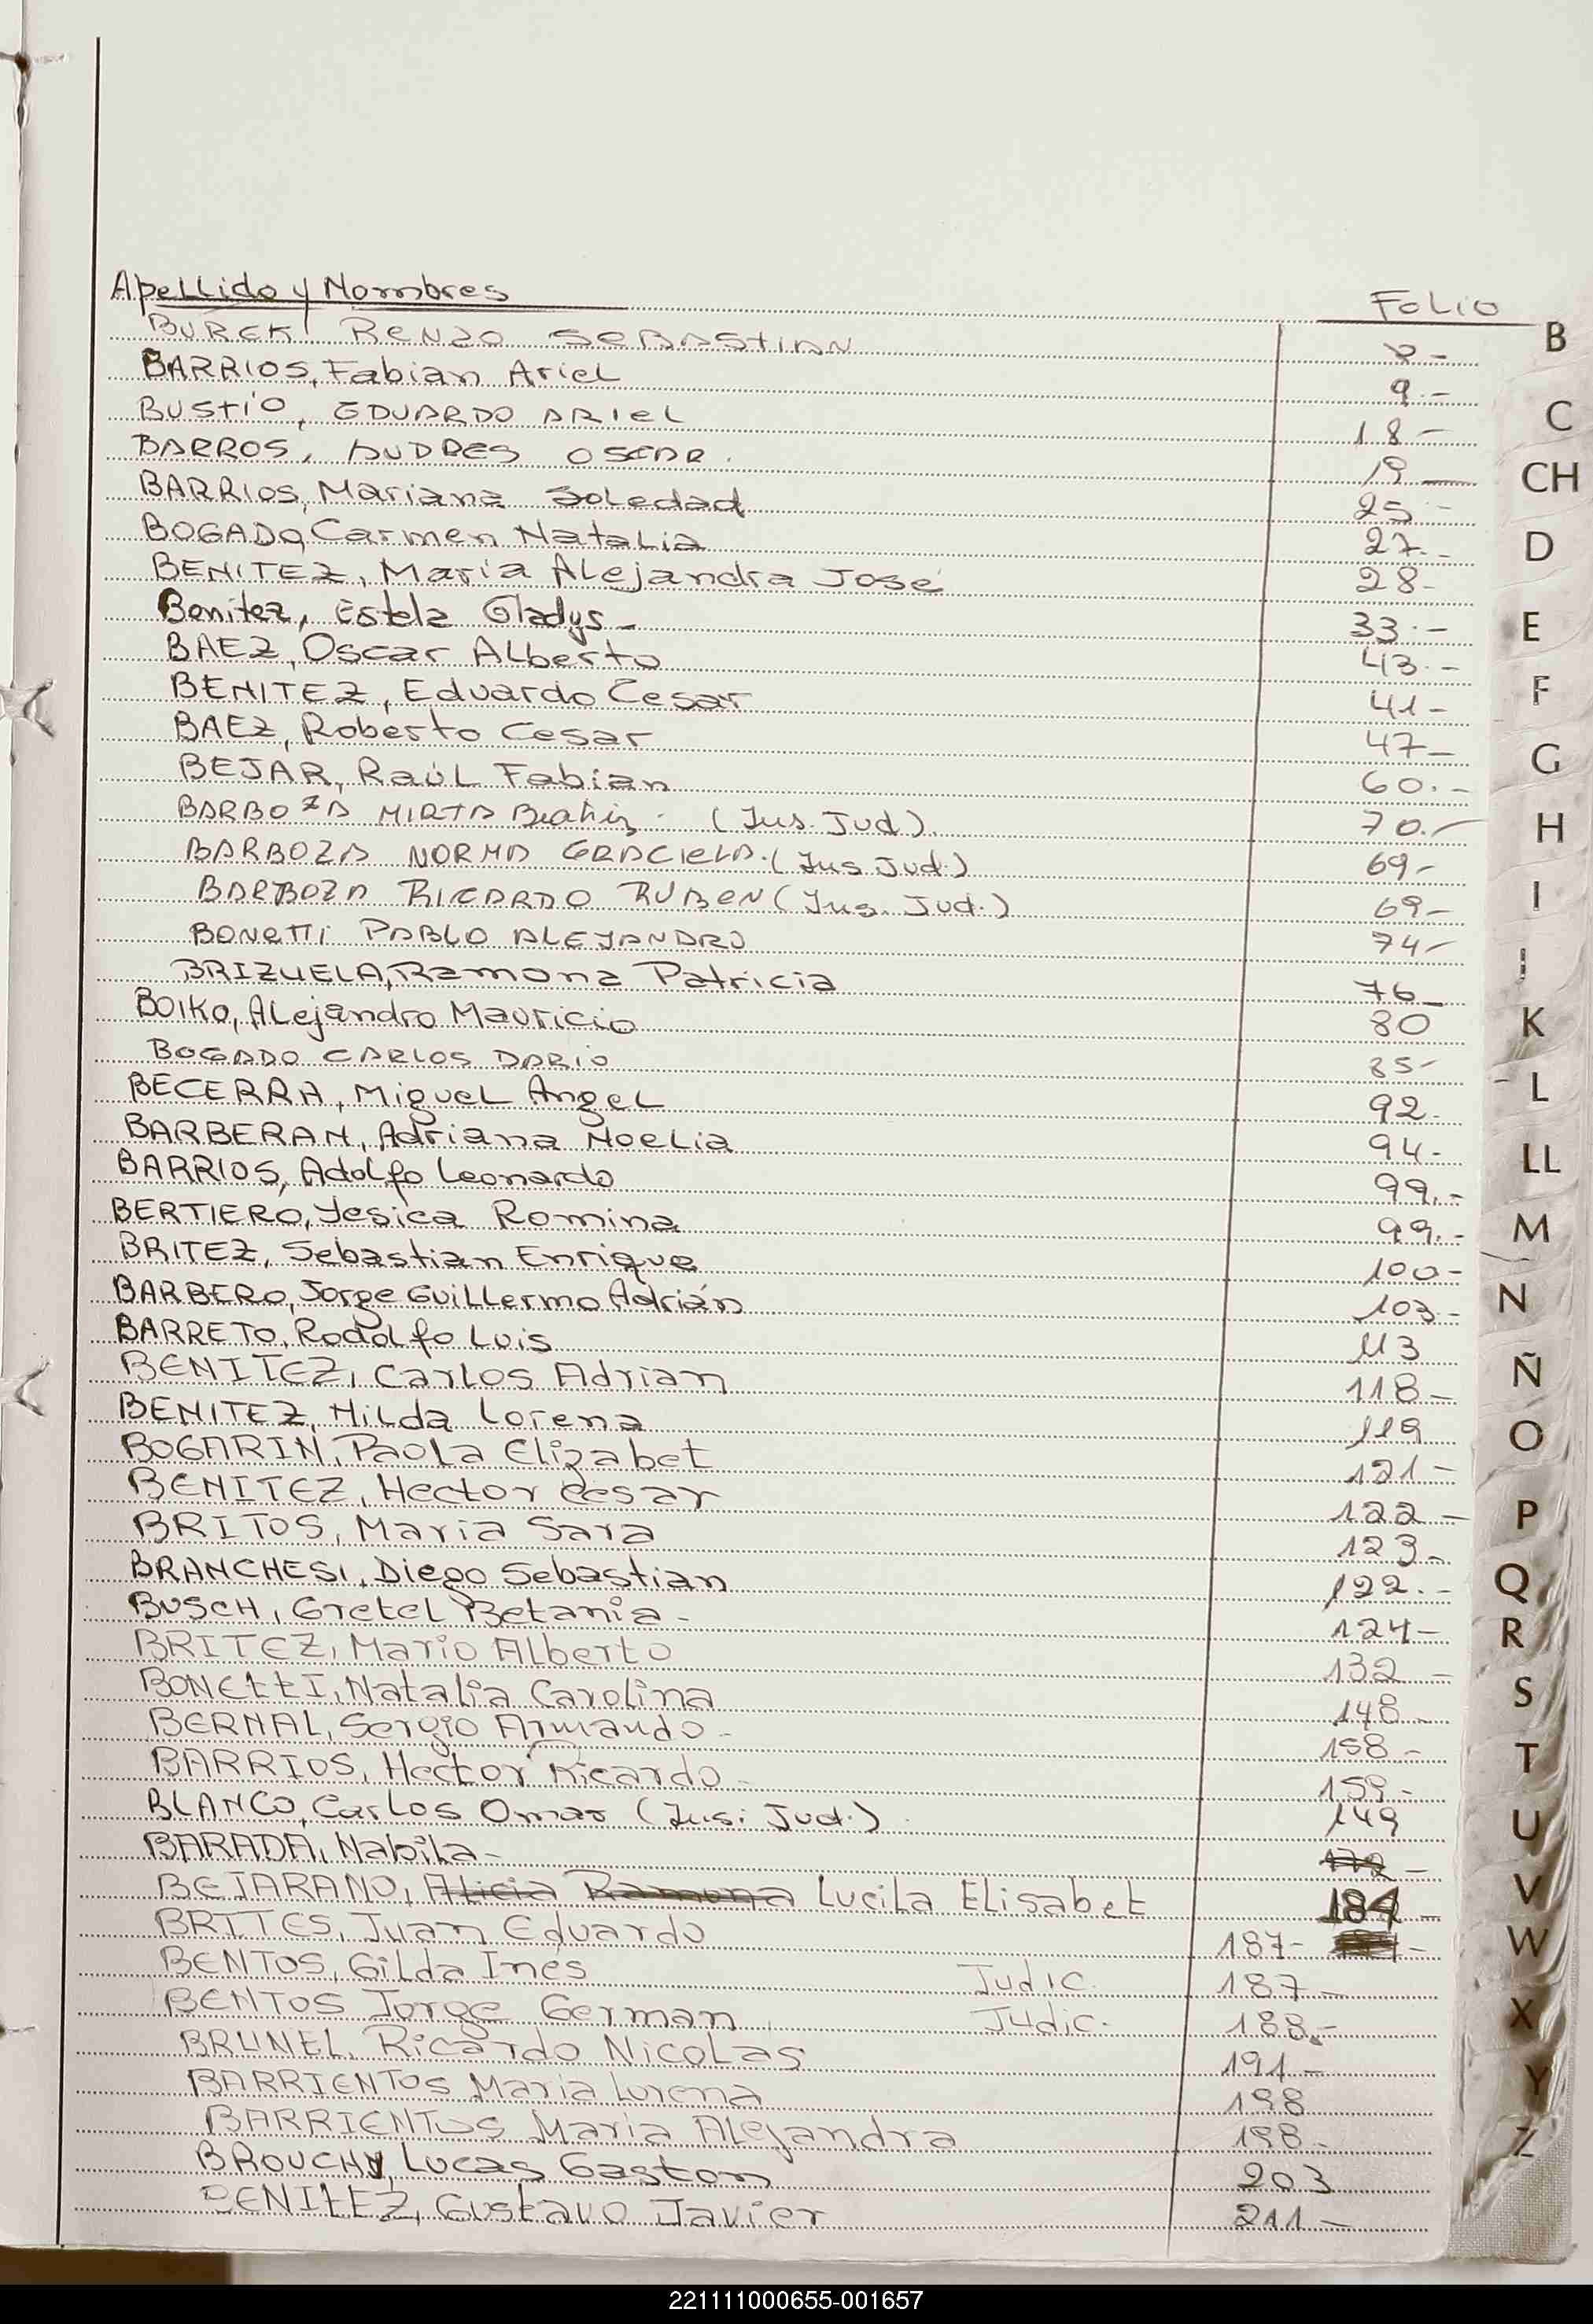 Apellido y Nombres Folio
BUREK RENZO SEBASTIAN 8-
BARRIOS, Fabian Ariel 9.-
BUSTIO, EDUARDO ARIEL 18-
BARROS, ANDRES OSCAR. 19-
BARRIOS, Mariana Soledad 25-
BOGADO, Carmen Natalia 27.-
BENITEZ, María Alejandra José 28-
Benitez, Estela Gladys- 33.-
BAEZ, Oscar Alberto 43.-
BENITEZ, Eduardo Cesar 41-
BAEZ, Roberto Cesar 47-
BEJAR, Raúl Fabian 60.-
BARBOZA MIRTA Beatriz. (Ins. Jud). 70.-
BARBOZA NORMA GRACIELA. (Ins. Jud.) 69-
BARBOZA RICARDO RUBEN (Ins. Jud.) 69-
BONETTI PABLO ALEJANDRO 74-
BRIZUELA, Ramona Patricia 76-
BOIKO, Alejandro Mauricio 80
BOGADO CARLOS DARIO 85-
BECERRA, Miguel Angel 92.
BARBERAN, Adriana Noelia 94-
BARRIOS, Adolfo Leonardo 99.-
BERTIERO, Yesica Romina 99.-
BRITEZ, Sebastian Enrique 100-
BARBERO, Jorge Guillermo Adrián 103-
BARRETO, Rodolfo Luis 113
BENITEZ, Carlos Adrian 118-
BENITEZ, Hilda Lorena 119
BOGARIN, Paola Elizabet 121-
BENITEZ, Hector Cesar 122-
BRITOS, Maria Sara 123-
BRANCHESI, Diego Sebastian 122.-
BUSCH, Gretel Betania- 124-
BRITEZ, Mario Alberto 132-
BONETTI, Natalia Carolina 148-
BERNAL, Sergio Armando- 158-
BARRIOS, Hector Ricardo- 159-
BLANCO, Carlos Omar (Ins. Jud.) 149
BARADA, Nabila- 172-
BEJARANO, Alicia Ramona Lucila Elisabet 184-
BRITES, Juan Eduardo 187-
BENTOS, Gilda Inés Judic. 187-
BENTOS Jorge German Judic. 188.-
BRUNEL, Ricardo Nicolas 191-
BARRIENTOS Maria Lorena 198
BARRIENTOS Maria Alejandra 198-
BROUCHY, Lucas Gaston 203
BENITEZ, Gustavo Javier 211-
B
C
CH
D
E
F
G
H
I
J
K
L
LL
M
N
Ñ
O
P
Q
R
S
T
U
V
W
X
Y
Z
221111000655-001657